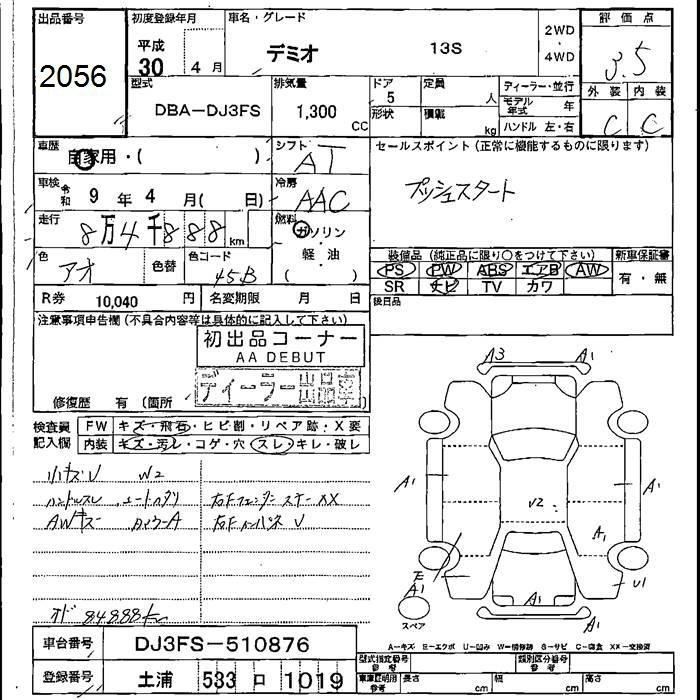 出品番号 初度登録年月 車名・グレード 2WD・4WD 評価点
2056 平成30 4月 デミオ 13S 3.5
型式 排気量 ドア 定員 ディーラー・並行 外装 内装
DBA−DJ3FS 1,300 CC 5 人 モデル年式 年 C C
形状 積載 kg ハンドル 左・右
車歴 自家用・( ) シフト AT セールスポイント (正常に機能するものに限ります)
車検 令和 9年 4月( 日) 冷房 AAC プッシュスタート
走行 8万4千888km 燃料 ガソリン・軽・油 ( )
装備品 (純正品に限り○をつけて下さい) 新車保証書
色 アオ 色替 色コード 45B PS PW ABS エアB AW 有・無
SR ナビ TV カワ
R券 10,040 円 名変期限 月 日 後日品
注意事項申告欄 (不具合内容等は具体的に記入して下さい)
初出品コーナー
AA DEBUT
ディーラー出品車
修復歴 有 (箇所 )
検査員記入欄 FW キズ・飛石・ヒビ割・リペア跡・X要
内装 キズ・汚レ・コゲ・穴 スレ・キレ・破レ
小キズU W2
ハンドルスレ
AWキズ
オド 84888km
A3 A1
A1 A1
V2
A1
A1
A1 U1
スペア
A−キズ E−エクボ U−凹み W−補修跡 S−サビ C−腐食 XX−交換済
車台番号 DJ3FS−510876
型式指定番号 参考 類別区分番号 参考
登録番号 土浦 533 ロ 1019
車庫証明用 参考 長さ cm 幅 cm 高さ cm